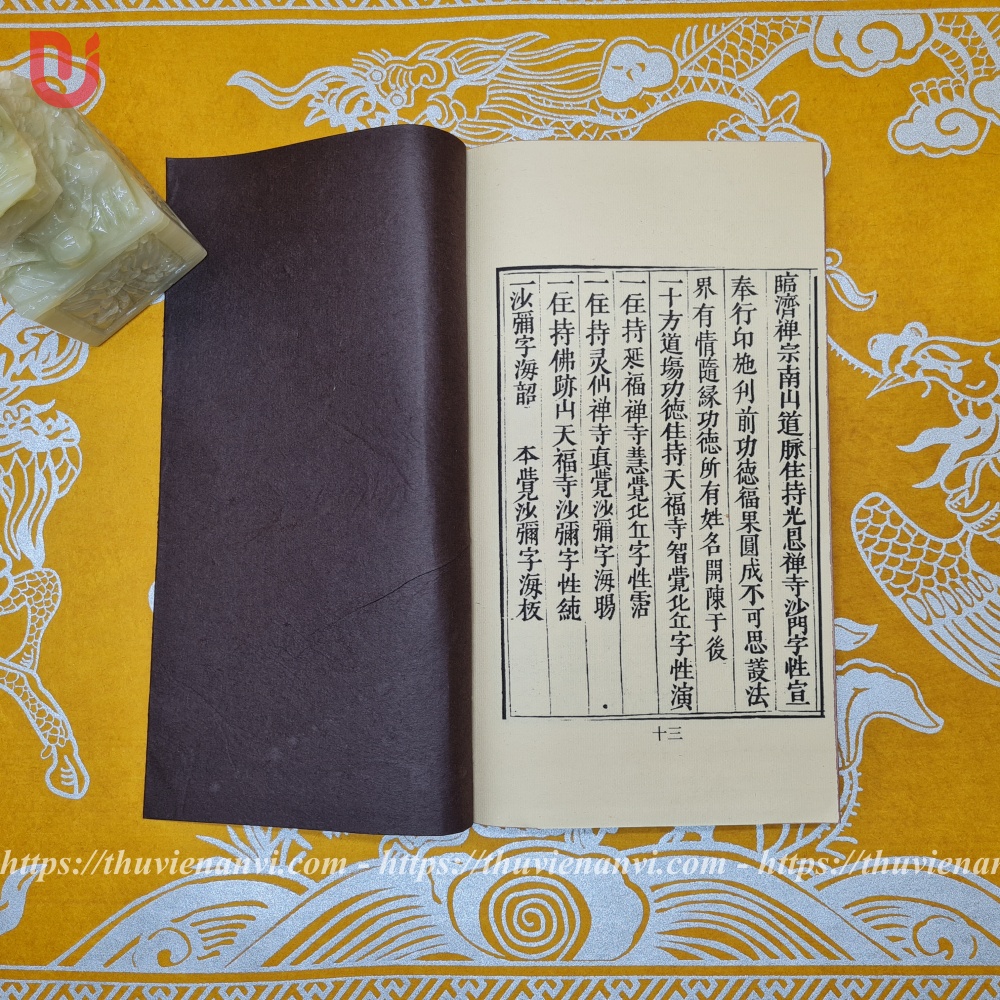 臨濟禅宗南山道脉住持光恩禅寺沙門字性宣
奉行印施刋前功徳福果圓成不可思議法
界有情隨縁功徳所有姓名開陳于後
一十方道塲功徳住持天福寺智覺比丘字性演
一住持延福禅寺慧覺比丘字性
一住持灵仙禅寺真覺沙彌字海
一住持佛跡山天福寺沙彌字性純
一沙彌字海韶 本覺沙彌字海板
十三
https://thuvienanvi.com - https://thuvienanvi.com - https://thuvienanvi